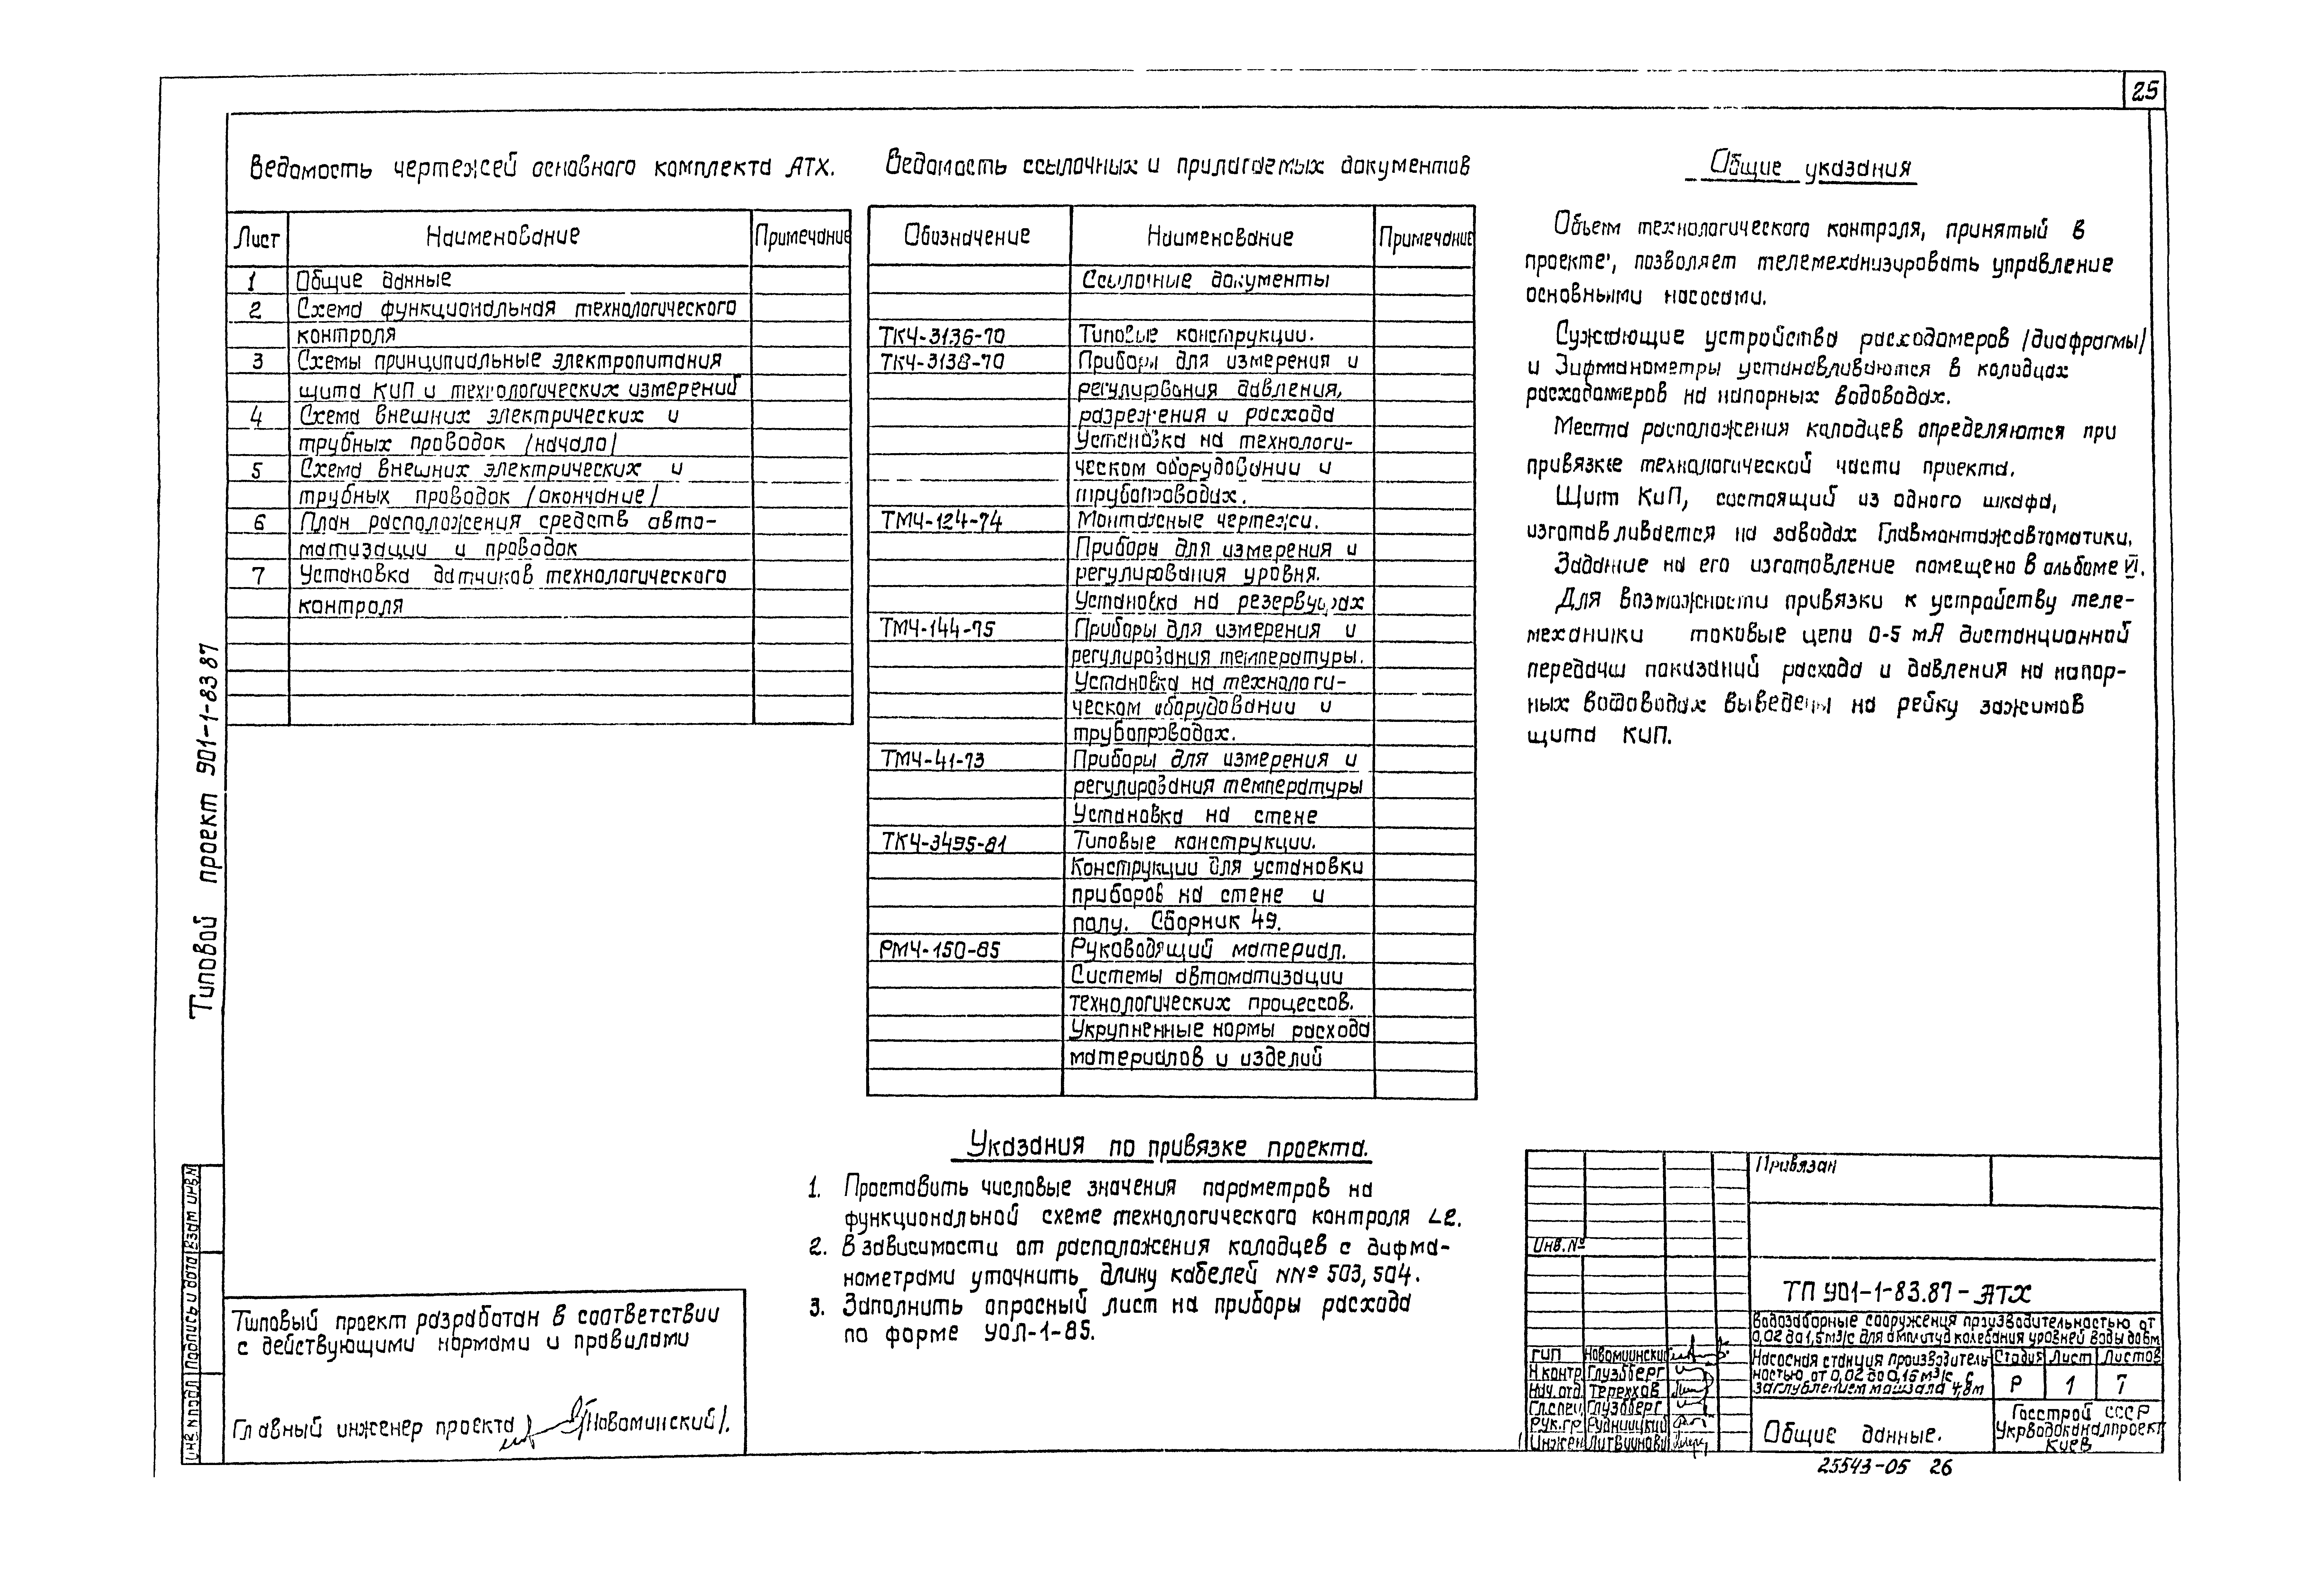 25
Ведомость чертежей основного комплекта АТХ.
Лист Наименование Примечание
1 Общие данные
2 Схема функциональная технологического
контроля
3 Схемы принципиальные электропитания
щита КиП и технологических измерений
4 Схема внешних электрических и
трубных проводок /начало/
5 Схема внешних электрических и
трубных проводок /окончание/
6 План расположения средств авто-
матизации и проводок
7 Установка датчиков технологического
контроля
Ведомость ссылочных и прилагаемых документов
Обозначение Наименование Примечание
Ссылочные документы
ТКЧ-3136-70 Типовые конструкции.
ТКЧ-3138-70 Приборы для измерения и
регулирования давления,
разрежения и расхода
Установка на технологи-
ческом оборудовании и
трубопроводах.
ТМЧ-124-74 Монтажные чертежи.
Приборы для измерения и
регулирования уровня.
Установка на резервуарах
ТМЧ-144-75 Приборы для измерения и
регулирования температуры.
Установка на технологи-
ческом оборудовании и
трубопроводах.
ТМЧ-41-73 Приборы для измерения и
регулирования температуры
Установка на стене
ТКЧ-3495-81 Типовые конструкции.
Конструкции для установки
приборов на стене и
полу. Сборник 49.
РМЧ-150-85 Руководящий материал.
Системы автоматизации
технологических процессов.
Укрупненные нормы расхода
материалов и изделий
Общие указания
Объем технологического контроля, принятый в
проекте, позволяет телемеханизировать управление
основными насосами.
Сужающие устройства расходомеров /диафрагмы/
и дифманометры устанавливаются в колодцах
расходомеров на напорных водоводах.
Места расположения колодцев определяются при
привязке технологической части проекта.
Щит КиП, состоящий из одного шкафа,
изготавливается на заводах Главмонтажавтоматики.
Задание на его изготовление помещено в альбоме VI.
Для возможности привязки к устройству теле-
механики токовые цепи 0-5 мА дистанционной
передачи показаний расхода и давления на напор-
ных водоводах выведены на рейку зажимов
щита КиП.
Указания по привязке проекта.
1. Проставить числовые значения параметров на
функциональной схеме технологического контроля л2.
2. В зависимости от расположения колодцев с дифма-
нометрами уточнить длину кабелей NNº 503, 504.
3. Заполнить опросный лист на приборы расхода
по форме УОЛ-1-85.
Типовой проект 901-1-83 87
Взам инв.N
Подпись и дата
Инв. N подл
Типовый проект разработан в соответствии
с действующими нормами и правилами
Главный инженер проекта /Новоминский/.
Привязан
Инв. Nº
ТП 901-1-83.87-АТХ
Водозаборные сооружения производительностью от
0,02 до 1,5 м3/с для амплитуд колебания уровней воды до 6м
ГИП Новоминский
Н контр Глузберг
Нач. отд. Терехов
Гл.спец Глузберг
Рук.гр Рудницкий
Инжен Литвинова
Насосная станция производитель
ностью от 0,02 до 0,15 м3/с с
заглублением машзала 4,8м
Стадия Лист Листов
Р 1 7
Общие данные.
Госстрой СССР
Укрводоканалпроект
Киев
25543-05 26